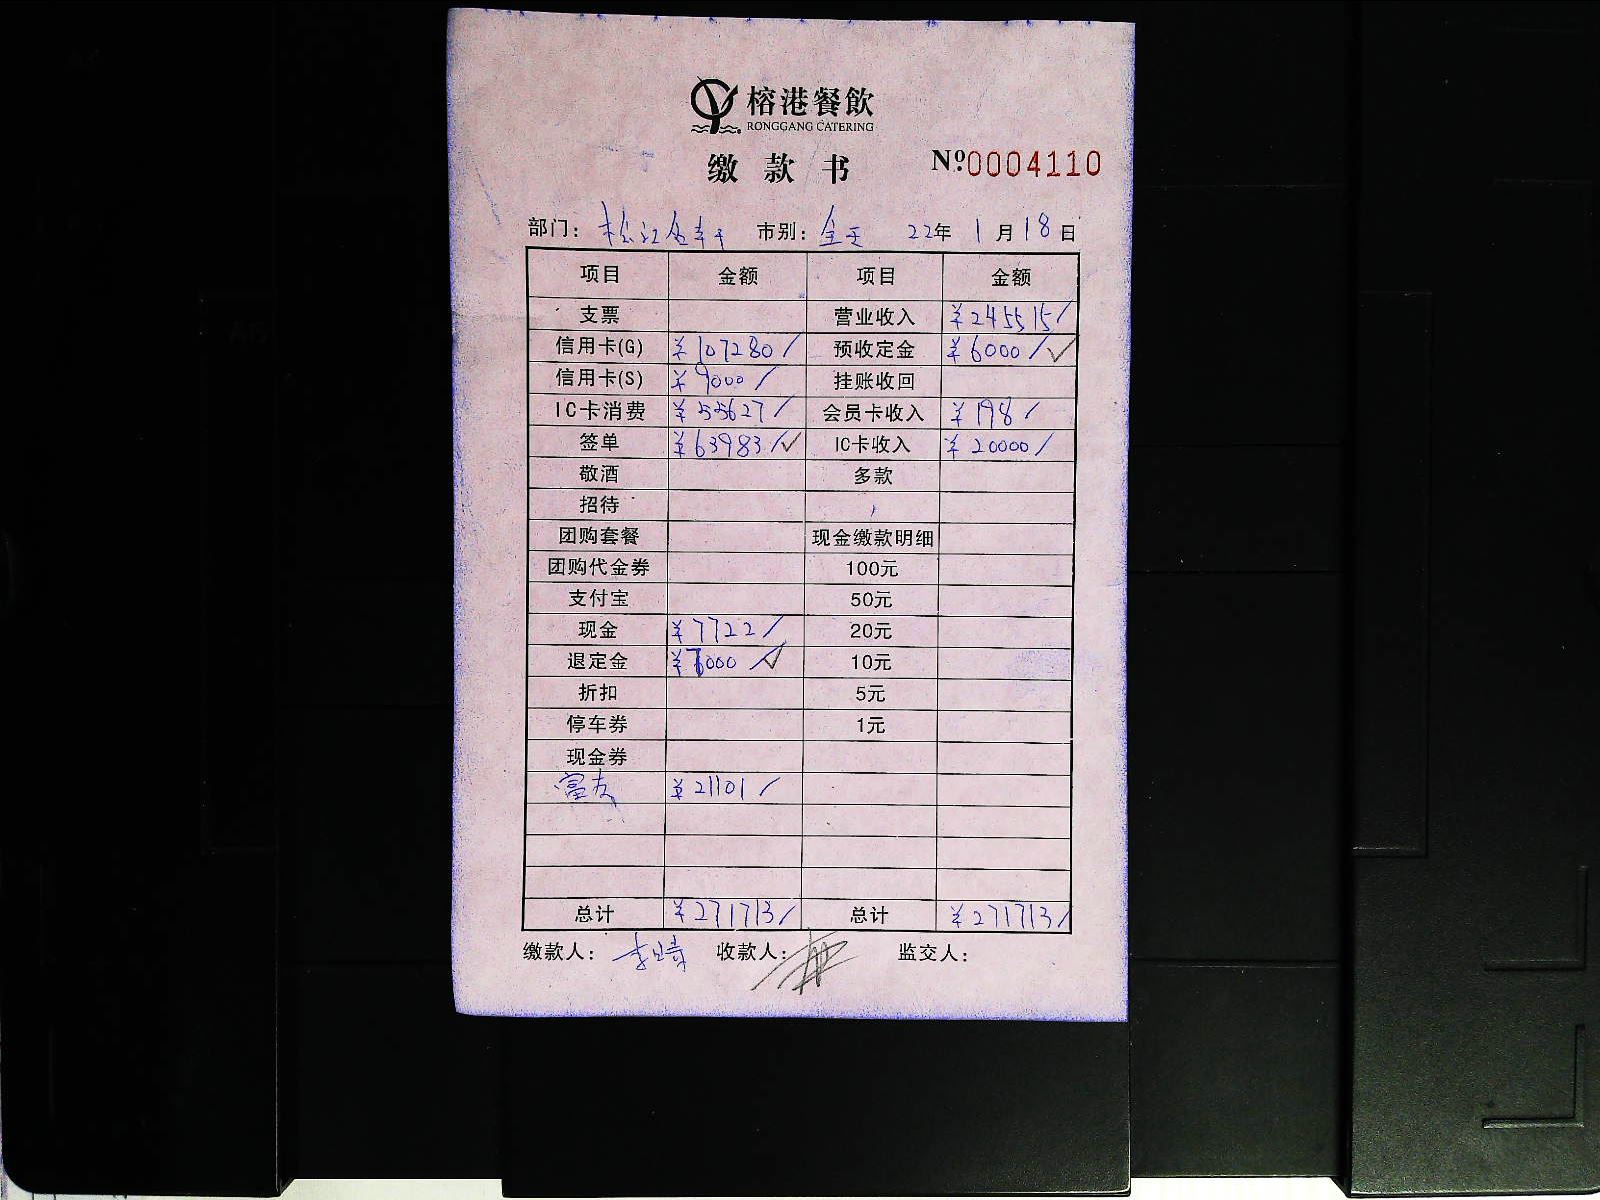 榕港餐飲
RONGGANG CATERING
缴款书 №0004110
部门：松江金轩 市别：全天 22年1月18日
项目 金额 项目 金额
支票 营业收入 ¥245515/
信用卡(G) ¥107280/ 预收定金 ¥6000/✓
信用卡(S) ¥9000/ 挂账收回
IC卡消费 ¥55627/ 会员卡收入 ¥198/
签单 ¥63983/✓ IC卡收入 ¥20000/
敬酒 多款
招待
团购套餐 现金缴款明细
团购代金券 100元
支付宝 50元
现金 ¥7722/ 20元
退定金 ¥7000/✓ 10元
折扣 5元
停车券 1元
现金券
富友 ¥21101/
总计 ¥271713/ 总计 ¥271713/
缴款人： 收款人： 监交人：